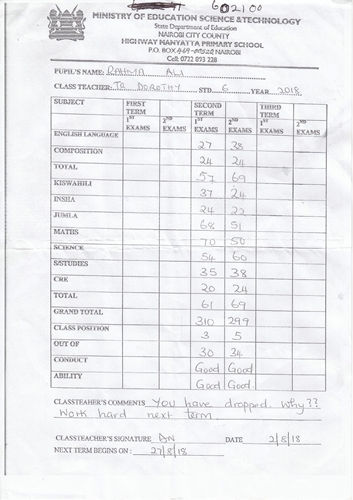 602100
MINISTRY OF EDUCATION SCIENCE & TECHNOLOGY
State Department of Education
NAIROBI CITY COUNTY
HIGHWAY MANYATTA PRIMARY SCHOOL
P.O. BOX NAIROBI
Cell: 0722 893 228
PUPIL'S NAME: RAHMA ALI
CLASS TEACHER: TR DOROTHY STD 6 YEAR 2018
SUBJECT FIRST TERM SECOND TERM THIRD TERM
1ST EXAMS 2ND EXAMS 1ST EXAMS 2ND EXAMS 1ST EXAMS 2ND EXAMS
ENGLISH LANGUAGE 27 38
COMPOSITION 24 24
TOTAL 57 69
KISWAHILI 37 24
INSHA 24 22
JUMLA 68 51
MATHS 70 50
SCIENCE 54 60
S/STUDIES 35 38
CRE 20 24
TOTAL 61 69
GRAND TOTAL 310 299
CLASS POSITION 3 5
OUT OF 30 34
CONDUCT Good Good
ABILITY Good Good
CLASSTEAHER'S COMMENTS You have dropped. Why??
Work hard next term
CLASSTEACHER'S SIGNATURE DATE 2/8/18
NEXT TERM BEGINS ON: 27/8/18